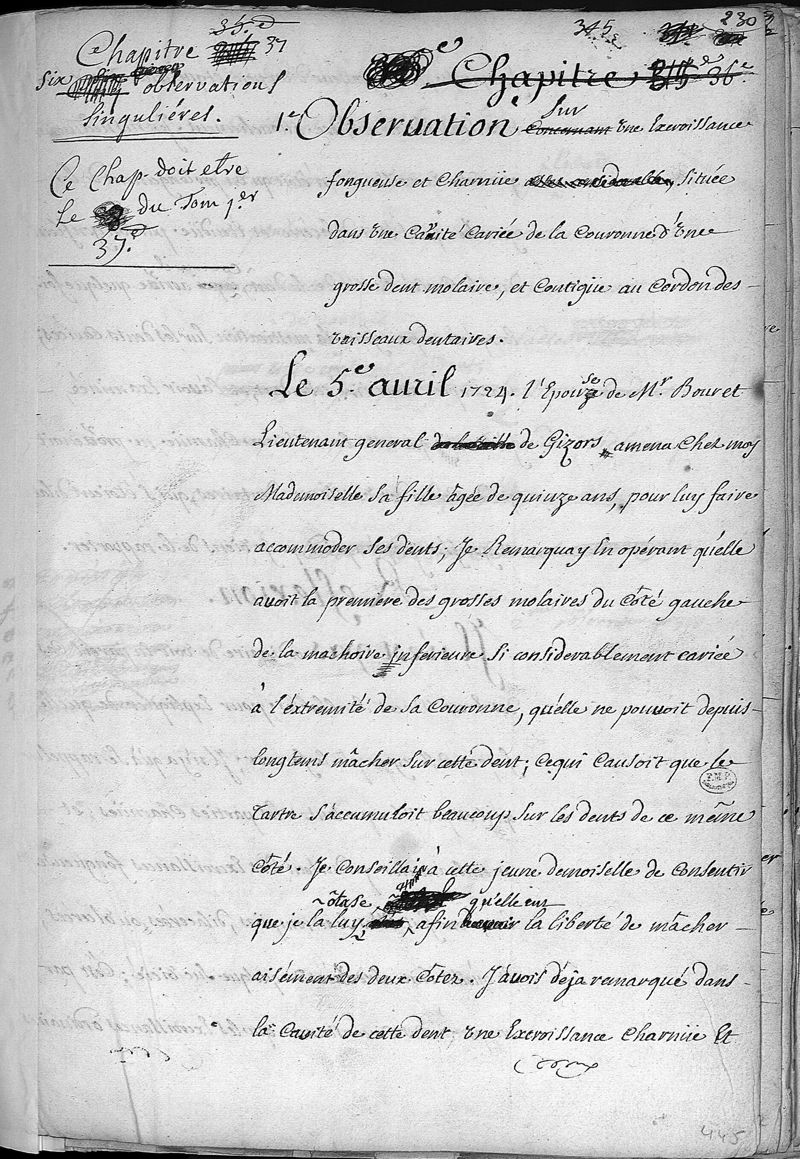 345
230
Chapitre 37
Six observations
Singuliéres.
Ce Chap. doit etre
Le du Tom 1er
37.e
Chapitre 36e
1.e Observation Sur une Excroissance
fongueuse et Charnüe, Située
dans une Cavité Cariée de la Couronne d'une
grosse dent molaire, et Contigue au Cordon des
vaisseaux dentaires.
Le 5.e avril 1724. l'Epouse de Mr. Bouret
Lieutenant general de Gizors, amena Chez moy
Mademoiselle Sa fille âgée de quinze ans, pour luy faire
accommoder Ses dents; Je Remarquay En opérant qu'elle
avoit la premiere des grosses molaires du Côté gauche
de la machoire inferieure Si considerablement cariée
à l'éxtremité de Sa Couronne, qu'elle ne pouvoit depuis
longtems mâcher Sur cette dent; Ce qui Causoit que le
Tartre S'accumuloit beaucoup Sur les dents de ce même
Côté. Je Conseillai à cette jeune demoiselle de Consentir
que je la luy ôtase, afin qu'elle eut la liberté de mâcher
aisément des deux Côtez. J'avois déja remarqué dans
la Cavité de cette dent, une Excroissance Charnüe Et
445